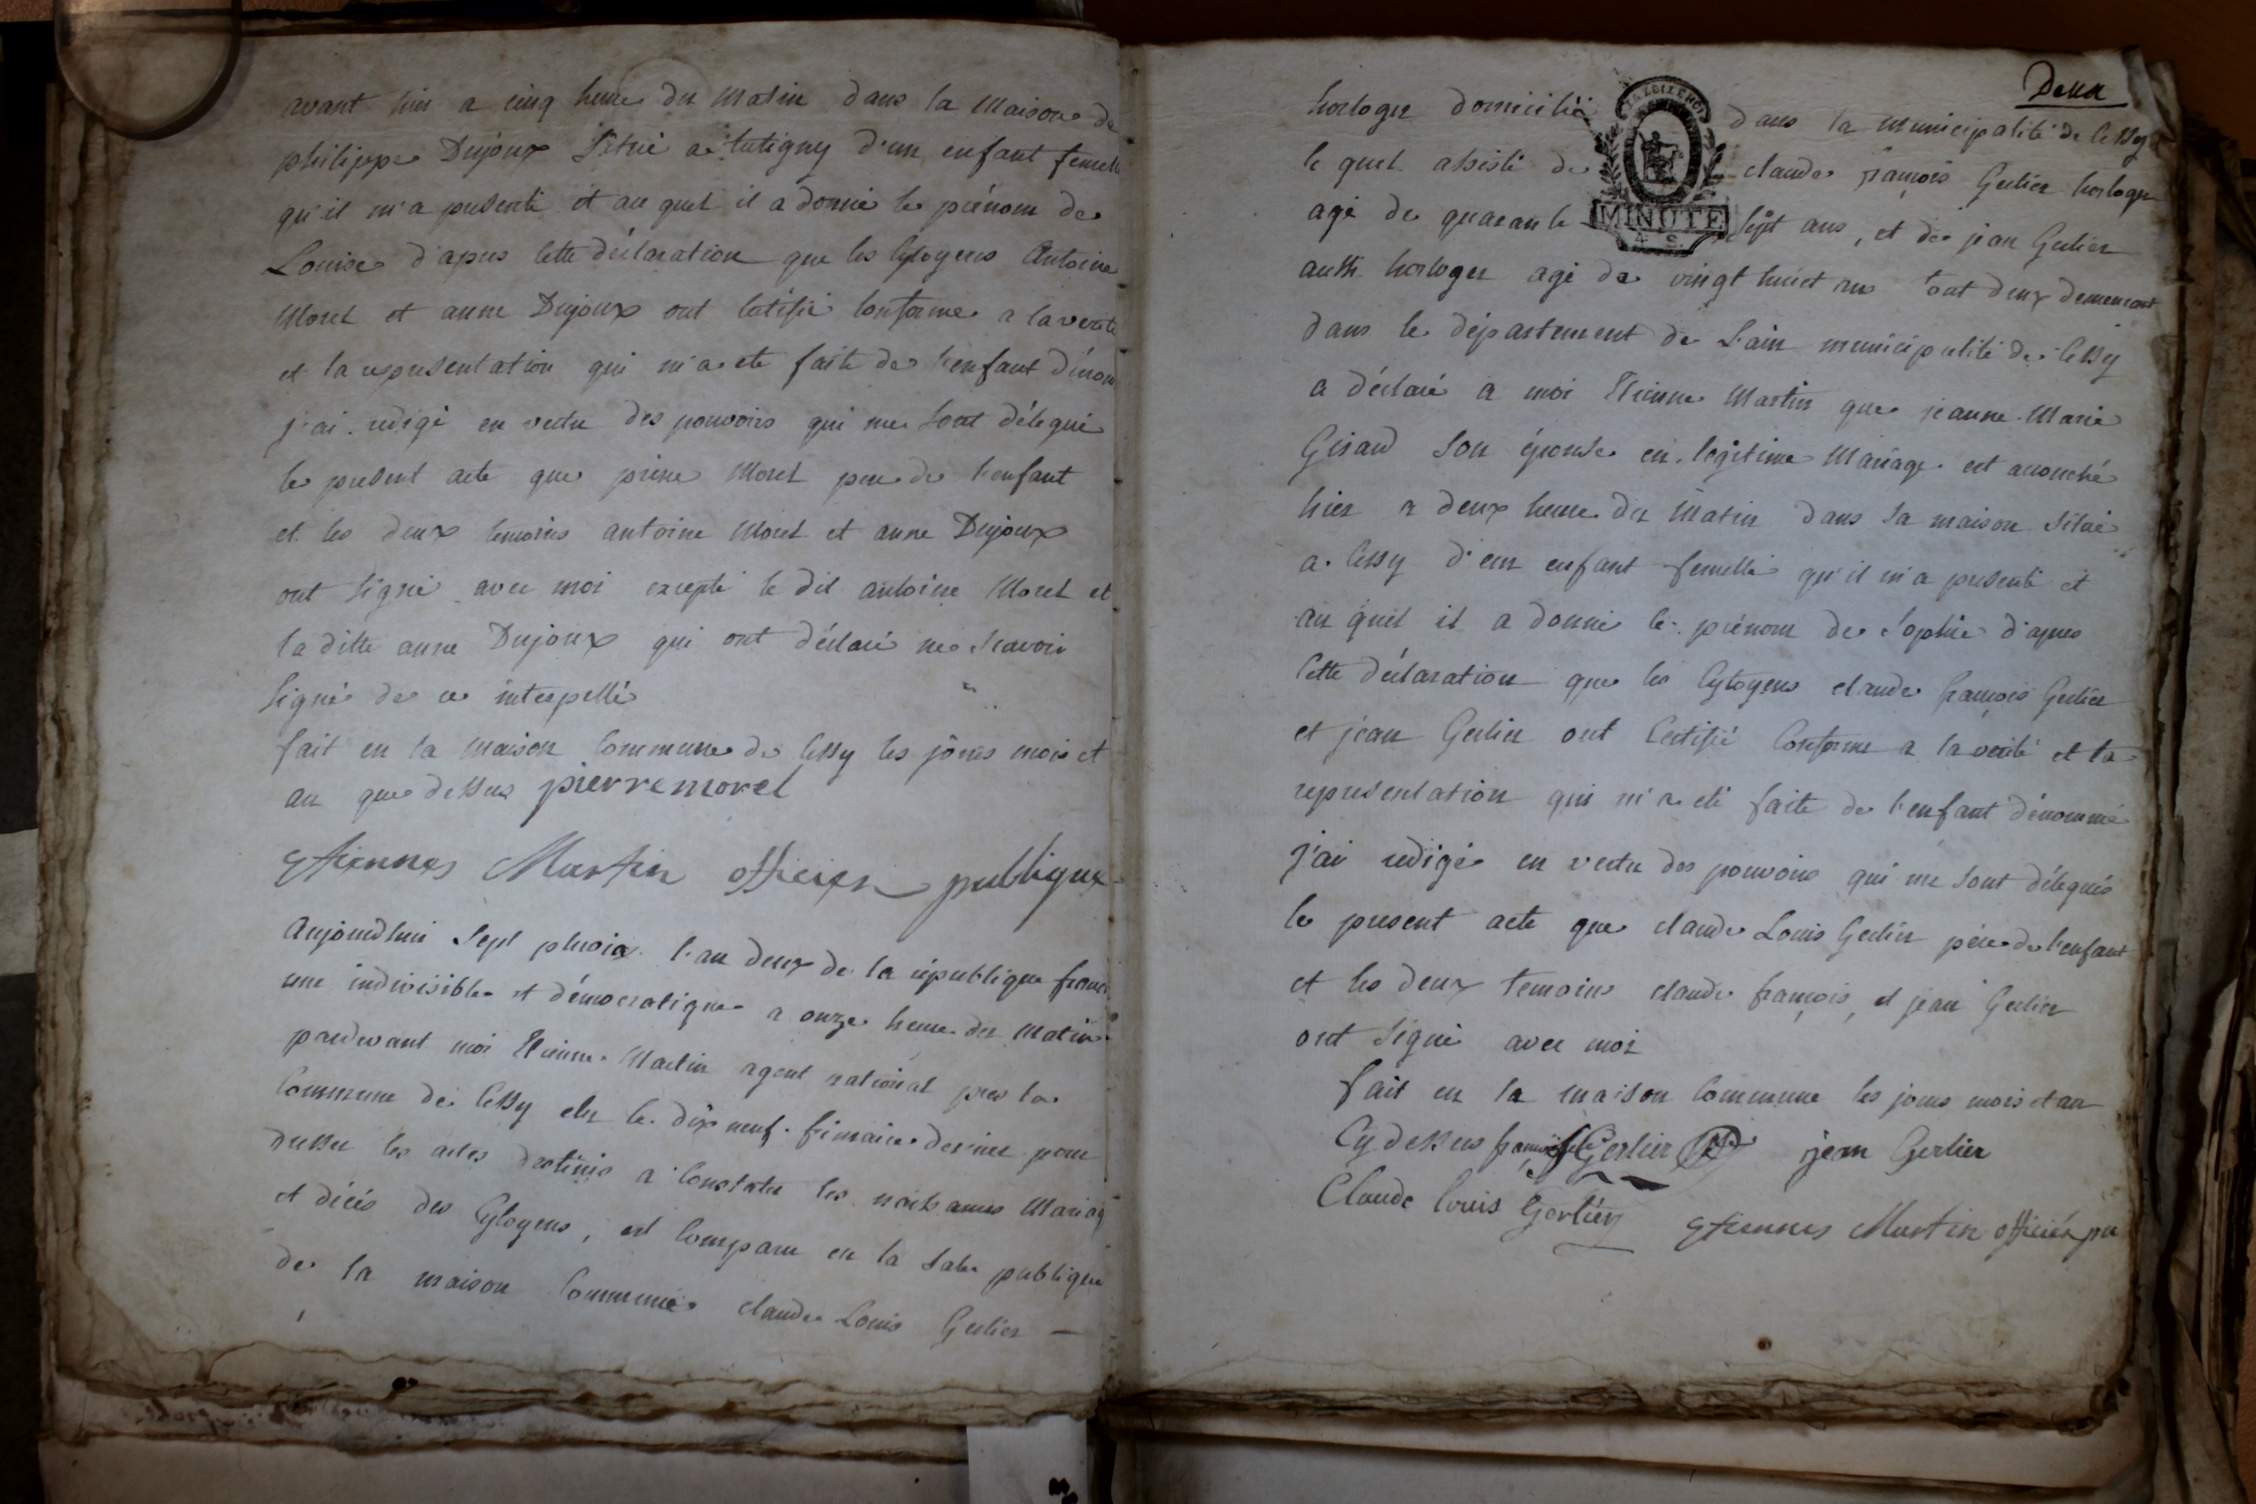 avant hier a cinq heure du matin dans la maison de
philippe Dujoux située a tutigny d'un enfant femelle
qu'il m'a présenté et au quel il a donné le prénom de
Louise d'après cette déclaration que les Cytoyens Antoine
Morel et anne Dujoux ont certifié conforme a la verité
et la représentation qui m'a eté faite de l'enfant dénom
j'ai rédigé en vertu des pouvoirs qui me sont délégué
le présent acte que pierre Morel pere de l'enfant
et les deux temoins antoine Morel et anne Dujoux
ont signé avec moi excepté le dit antoine Morel et
la ditte anne Dujoux qui ont déclaré ne scavoir
signé de ce interpellé
fait en la maison commune de Cessy les jours mois et
an que dessus pierre morel
etiennes Martin officier publique
Aujourdhui sept pluvia l'an deux de la république franc
une indivisible et démocratique a onze heure du matin
pardevant moi Etienne Martin agent national pres la
Commune de Cessy elu le dix neuf frimaire dernier pour
dresser les actes destinés a constater les naissances Mariag
et décés des Cytoyens, est comparu en la sale publique
de la maison Commune claude Louis Gerlier —
Deux
LA LOI LE ROI
MINUTE
4 S
horloger domicilié dans la municipalité de Cessy
le quel assisté de claude françois Gerlier horloger
agé de quarante sept ans, et de jean Gerlier
aussi horloger agé de vingt huit ans tout deux demeurant
dans le département de l'ain municipalité de Cessy
a déclaré a moi Etienne Martin que jeanne Marie
Girard son épouse en légitime Mariage est accouché
hier a deux heure du matin dans sa maison située
a Cessy d'un enfant femelle qu'il m'a présenté et
au quel il a donné le prénom de Sophie d'apres
cette déclaration que les Cytoyens claude françois Gerlier
et jean Gerlier ont Certifié Conforme a la verité et la
représentation qui m'a eté faite de l'enfant dénommé
j'ai rédigé en vertu des pouvoirs qui me sont délégués
le present acte que claude Louis Gerlier père de l'enfant
et les deux temoins claude françois, et jean Gerlier
ont signé avec moi
fait en la maison Commune les jours mois et an
Cy dessus françois Gerlier jean Gerlier
Claude louis Gerlier etiennes Martin officiér pu